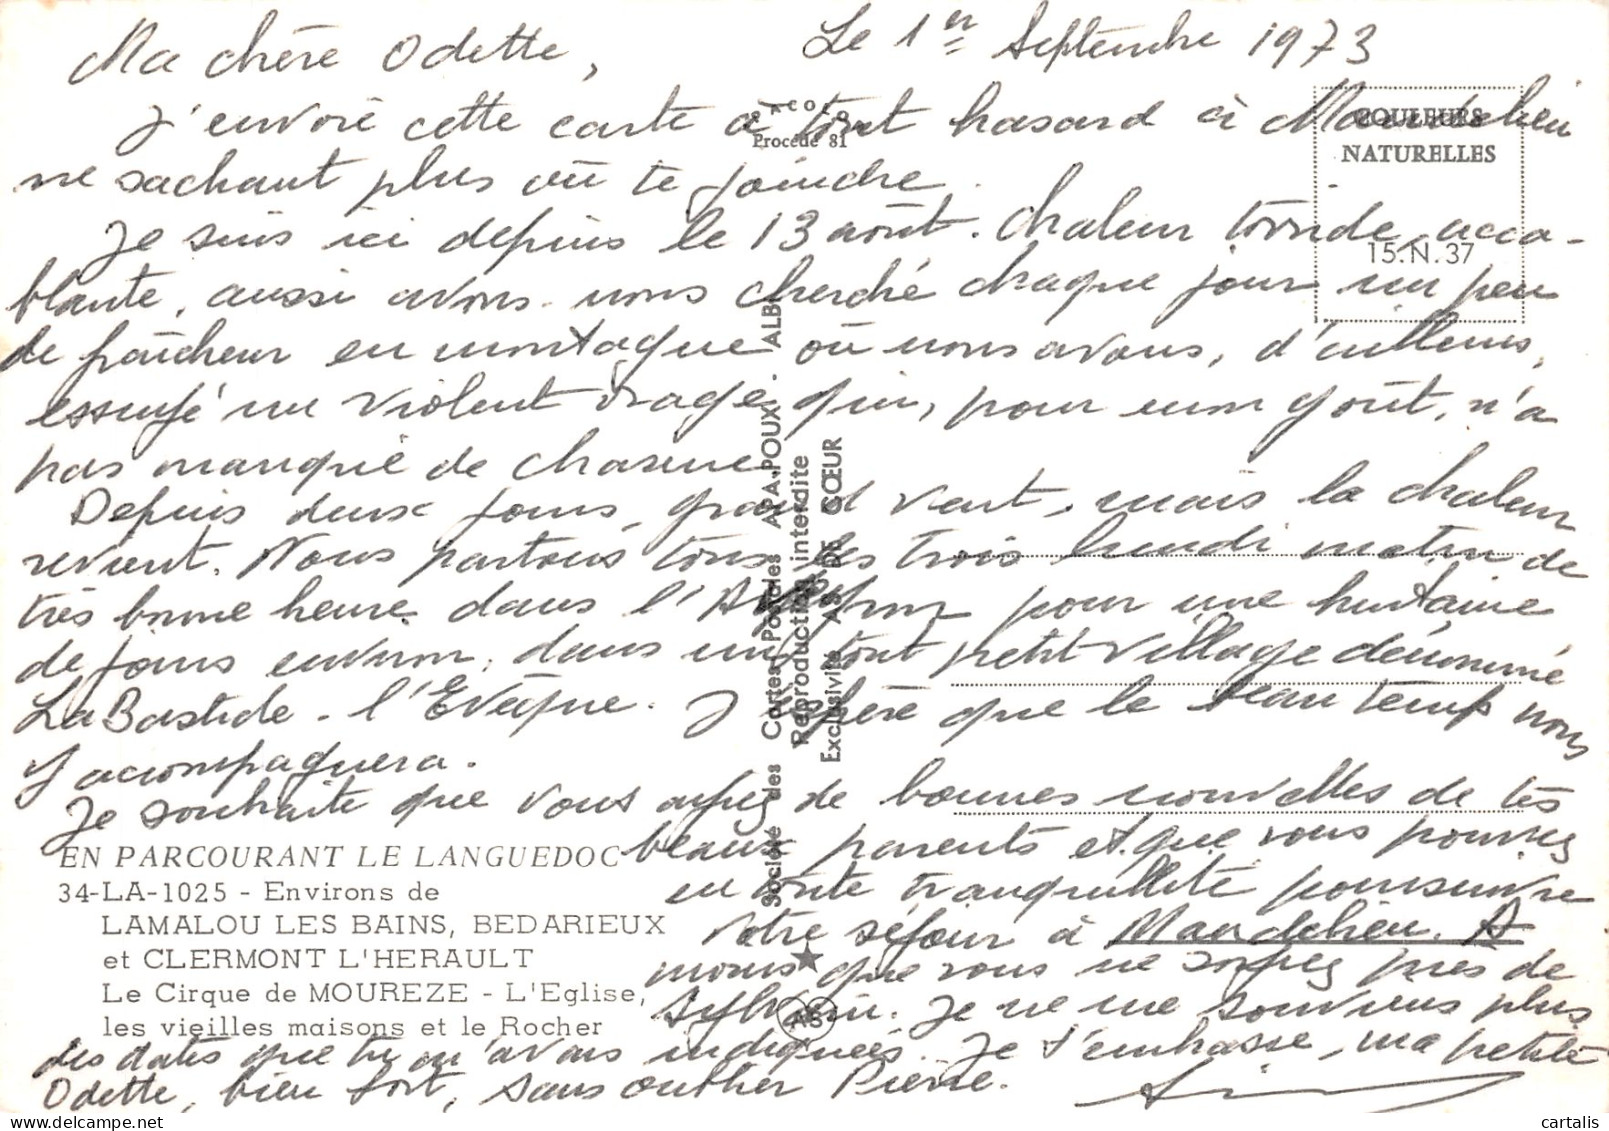 Ma chère Odette,
Le 1er Septembre 1973
J'envoie cette carte à tout hasard à Mandelieu
ne sachant plus où te joindre.
Je suis ici depuis le 13 août. Chaleur torride, acca-
blante, aussi avons-nous cherché chaque jour un peu
de fraîcheur en montagne où nous avons, d'ailleurs,
essuyé un violent orage qui, pour mon goût, n'a
pas manqué de charme.
Depuis deux jours, grand vent, mais la chaleur
revient. Nous partons tous les trois lundi matin de
très bonne heure dans l'Aveyron pour une huitaine
de jours environ, dans un tout petit village dénommé
La Bastide-l'Evêque. J'espère que le beau temps nous
y accompagnera.
Je souhaite que vous ayez de bonnes nouvelles de tes
beaux parents et que vous pourrez
en toute tranquillité poursuivre
votre séjour à Mandelieu. A
moins que vous ne soyez près de
Sylvain. Je ne me souviens plus
des dates que tu m'avais indiquées. Je t'embrasse, ma petite
Odette, bien fort, sans oublier Pierre.
COULEURS
NATURELLES
15.N.37
Procédé 81
Société des Cartes Postales APA-POUX - ALBI
Reproduction interdite
Exclusivité AS DE CŒUR
AS
EN PARCOURANT LE LANGUEDOC
34-LA-1025 - Environs de
LAMALOU LES BAINS, BEDARIEUX
et CLERMONT L'HERAULT
Le Cirque de MOUREZE - L'Eglise,
les vieilles maisons et le Rocher
cartalis